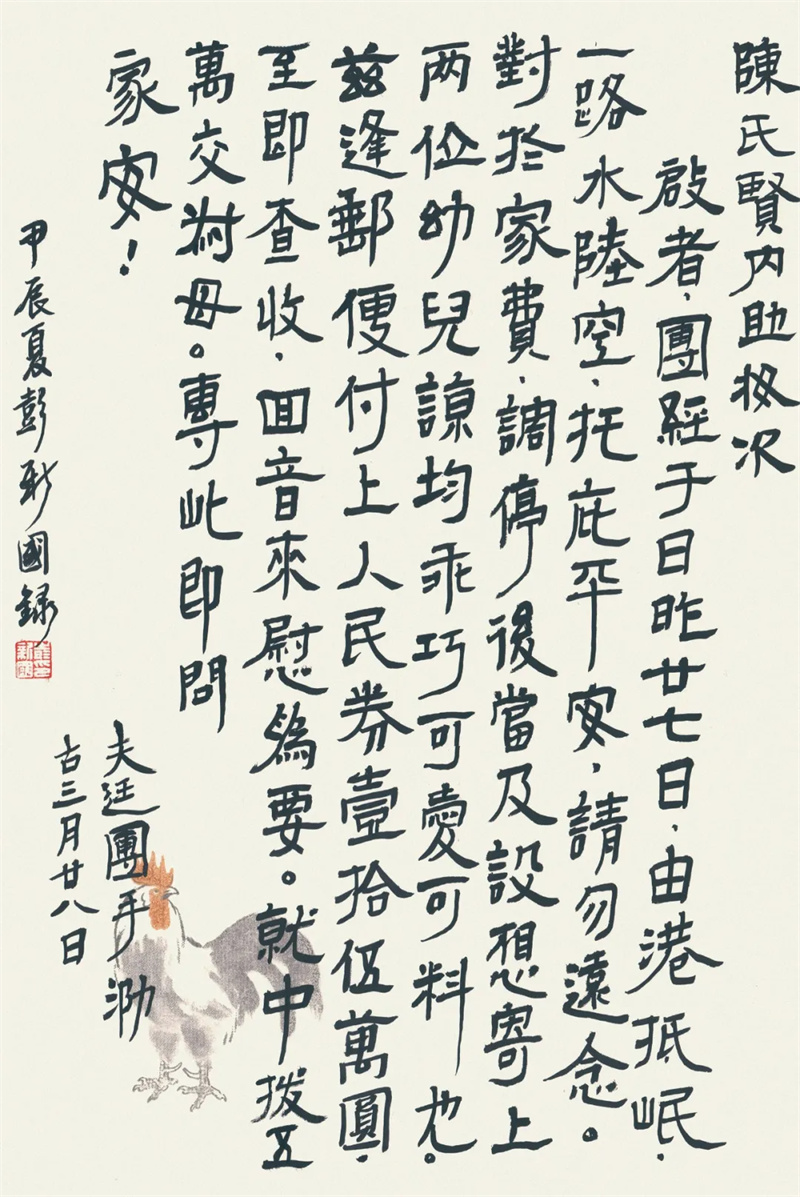 陳氏賢內助妝次
啟者，團經于日昨廿七日，由港抵岷，
一路水陸空，托庇平安，請勿遠念。
對於家費，調停後當及設想寄上
两位幼兒諒均乖巧可愛可料也。
茲逢郵便付上人民券壹拾伍萬圓，
至即查收，回音來慰為要。就中撥五
萬交對母。專此即問
家安！
夫廷團手泐
古三月廿八日
甲辰夏彭新國録